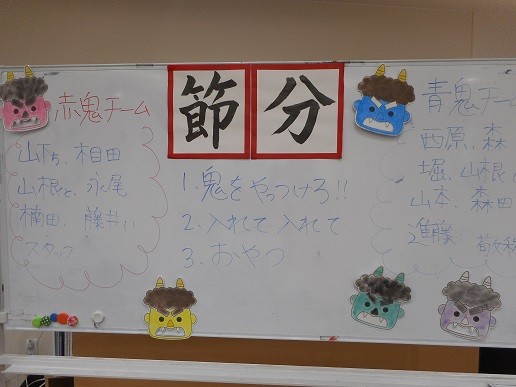 節分
赤鬼チーム
山下ち、相田
山根と、永尾
楠田、藤井い
スタッフ
1. 鬼をやっつけろ!!
2. 入れて 入れて
3. おやつ
青鬼チーム
西原、森
堀、山根
山本、森田
進藤